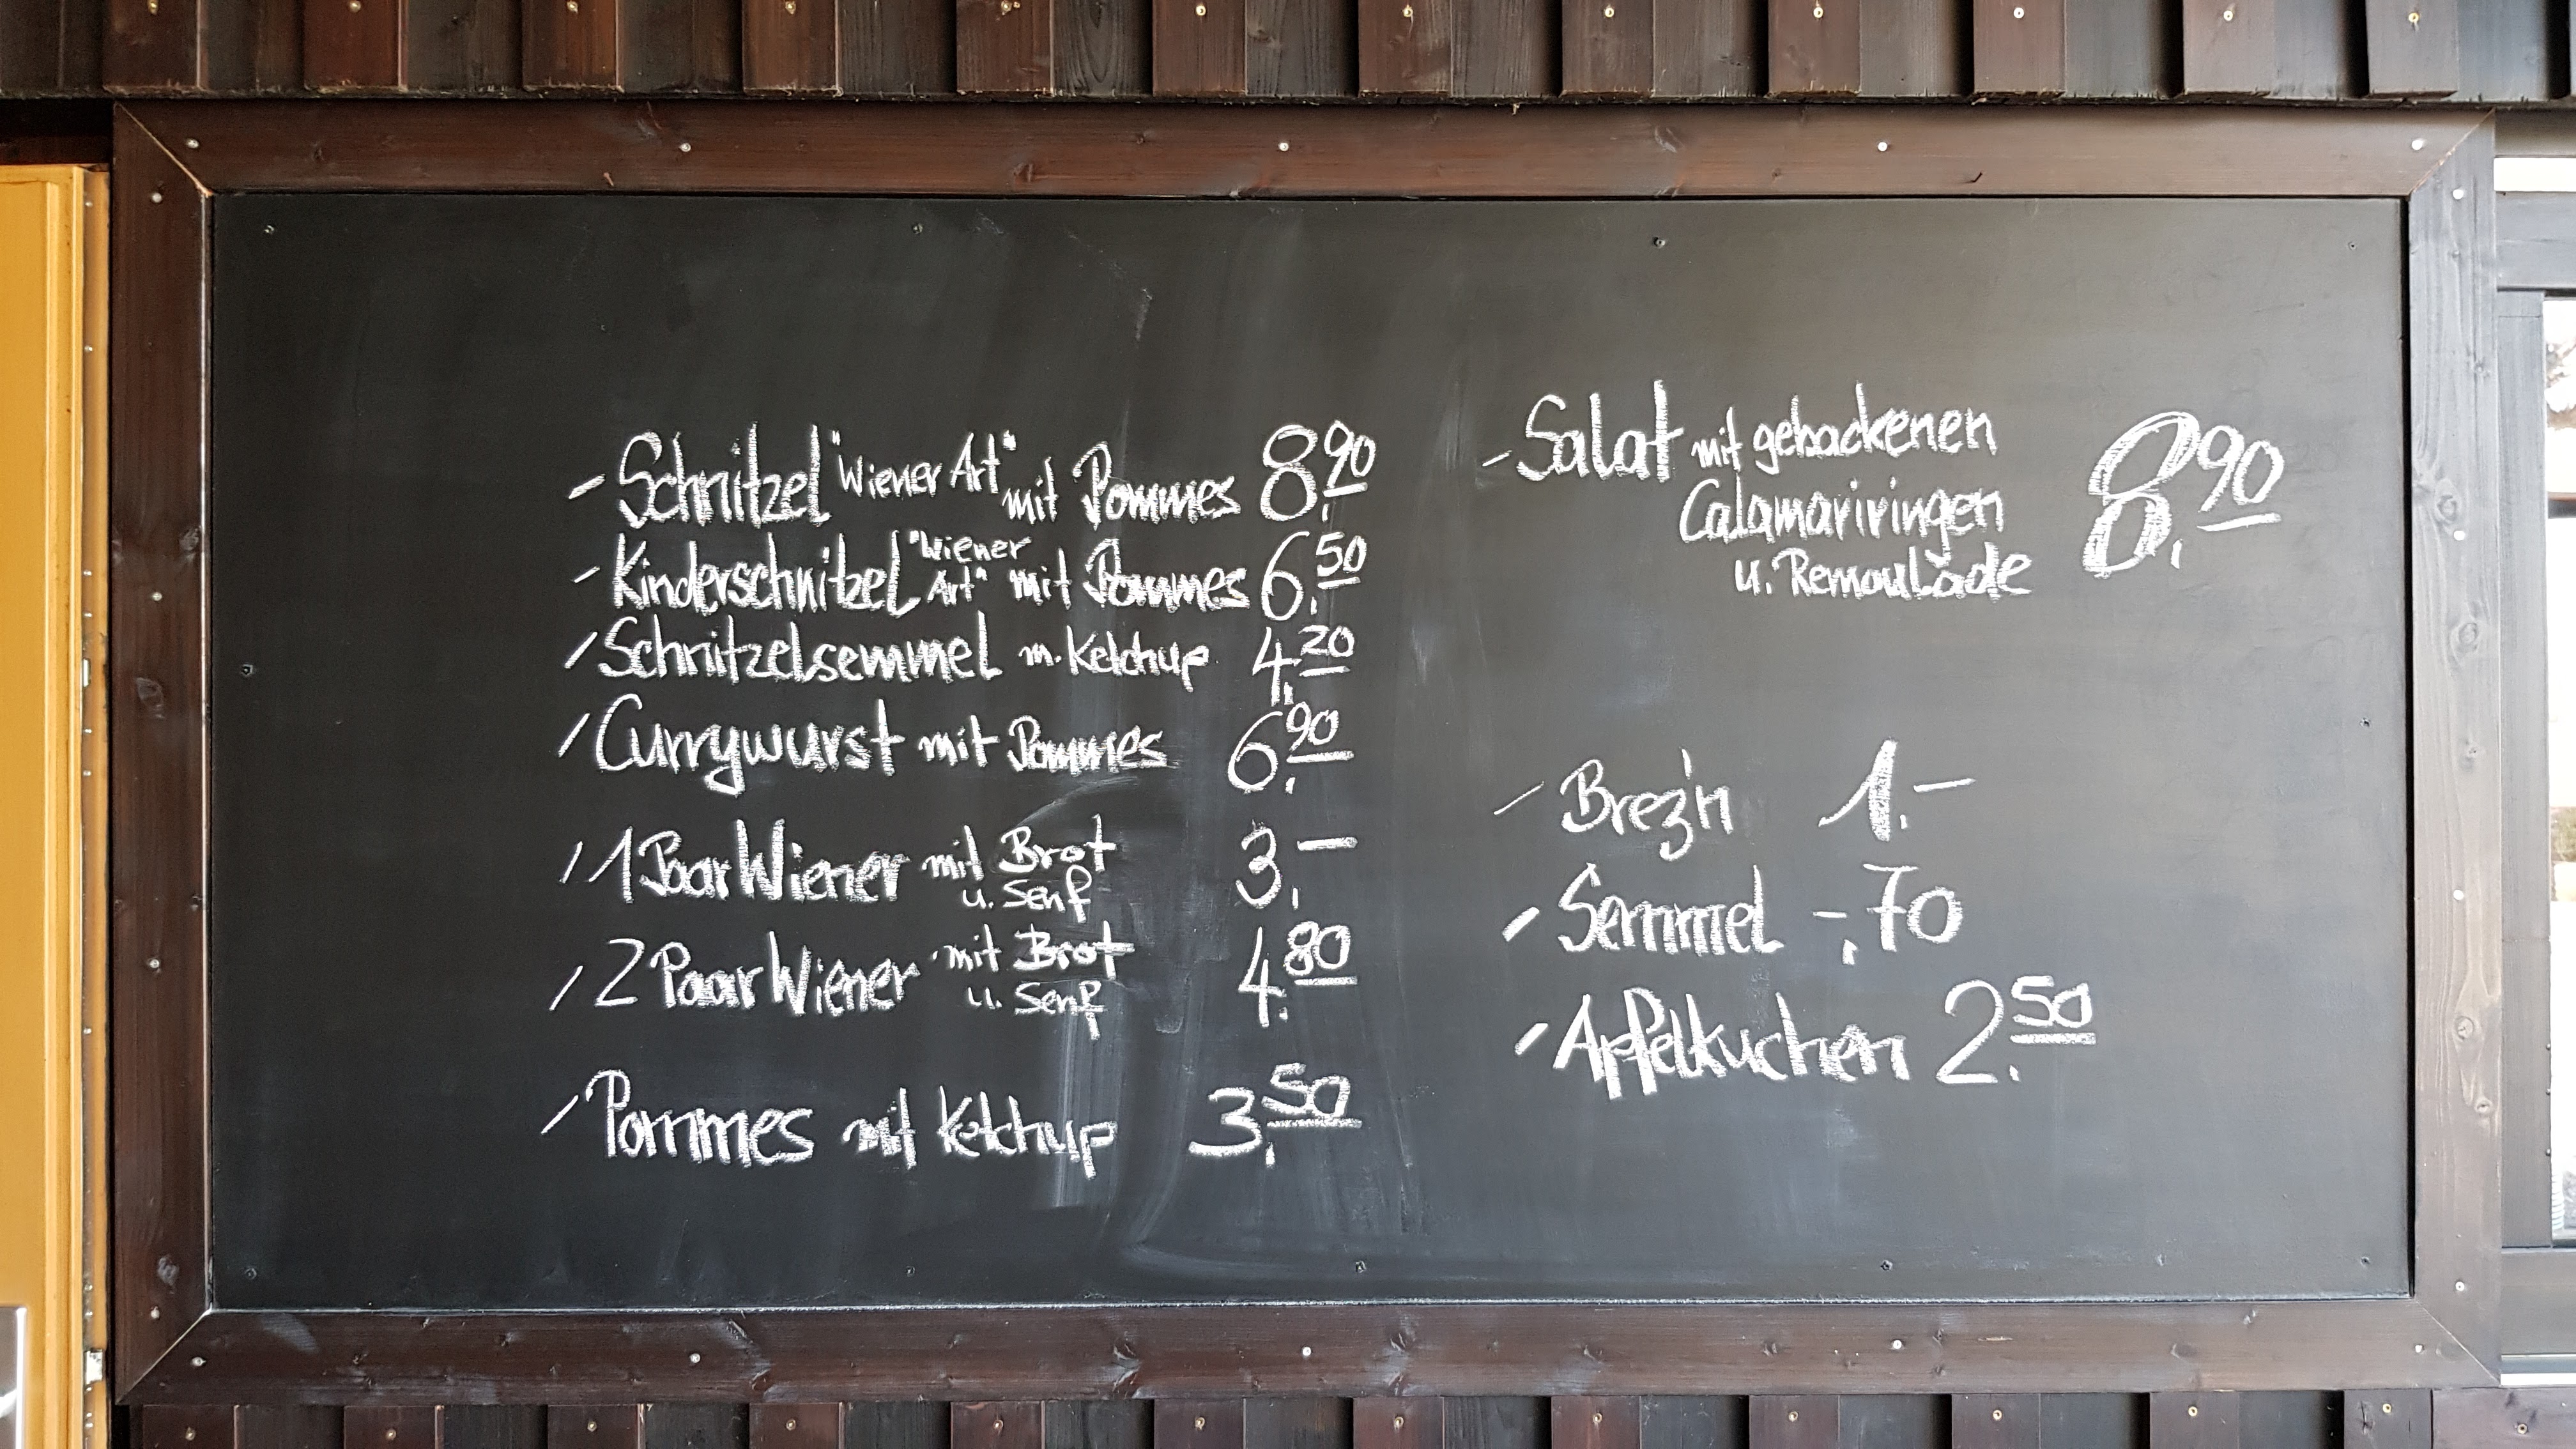 - Schnitzel "Wiener Art" mit Pommes 8,90
- Kinderschnitzel "Wiener Art" mit Pommes 6,50
- Schnitzelsemmel m. Ketchup 4,20
- Currywurst mit Pommes 6,90
- 1 Paar Wiener mit Brot 3,-
u. Senf
- 2 Paar Wiener mit Brot 4,80
u. Senf
- Pommes mit Ketchup 3,50
- Salat mit gebackenen
Calamariringen 8,90
u. Remoulade
- Brez'n 1.-
- Semmel -,70
- Apfelkuchen 2.50